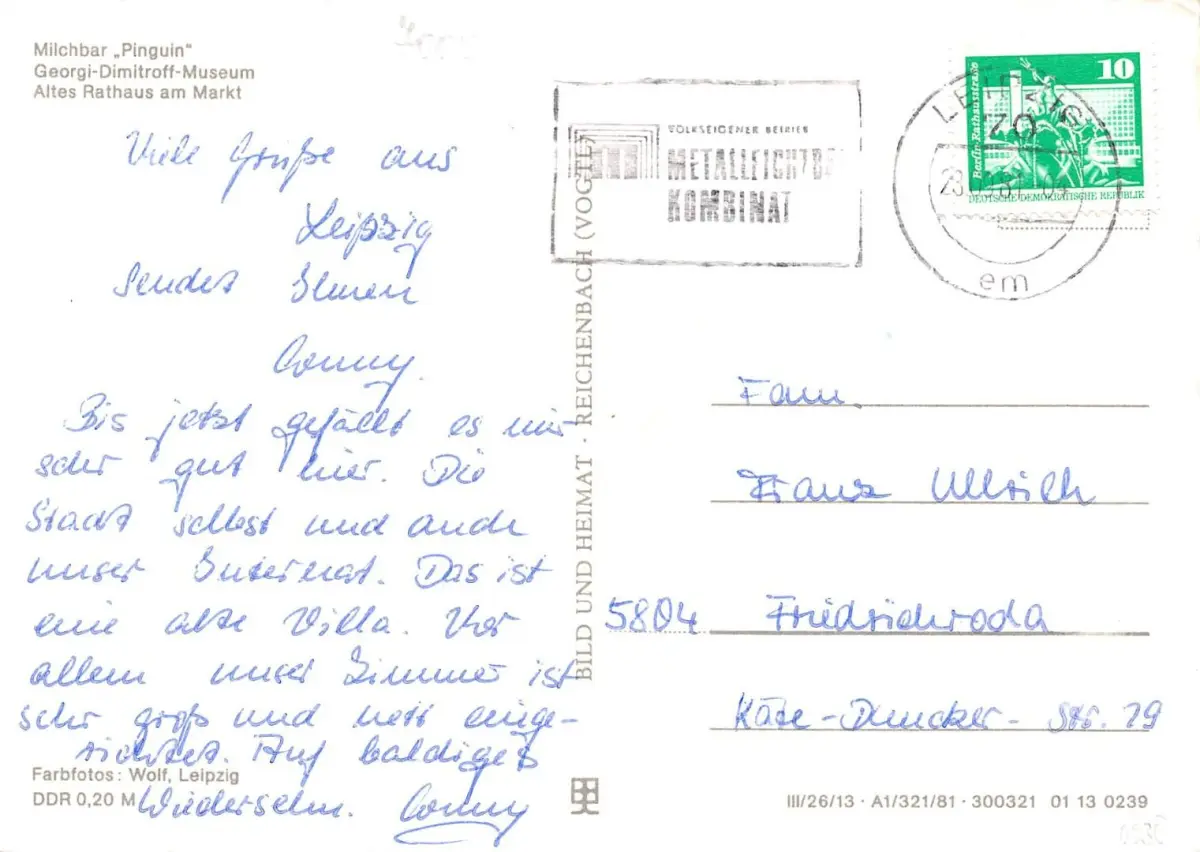 Milchbar „Pinguin“
Georgi-Dimitroff-Museum
Altes Rathaus am Markt
Viele Grüße aus
Leipzig
sendet Ihnen
Conny.
Bis jetzt gefällt es mir
sehr gut hier. Die
Stadt selbst und auch
unser Internat. Das ist
eine alte Villa. Vor
allem unser Zimmer ist
sehr groß und nett einge-
richtet. Auf baldiges
Wiedersehn. Conny
Farbfotos: Wolf, Leipzig
DDR 0,20 M
BILD UND HEIMAT · REICHENBACH (VOGTL)
VOLKSEIGENER BETRIEB
METALLEICHTBA
KOMBINAT
LEIPZIG
em
10
Berlin-Rathausstraße
DEUTSCHE DEMOKRATISCHE REPUBLIK
Fam.
Franz Ullrich
5804 Friedrichroda
Käte-Duncker-Str. 29
III/26/13 · A1/321/81 · 300321 01 13 0239